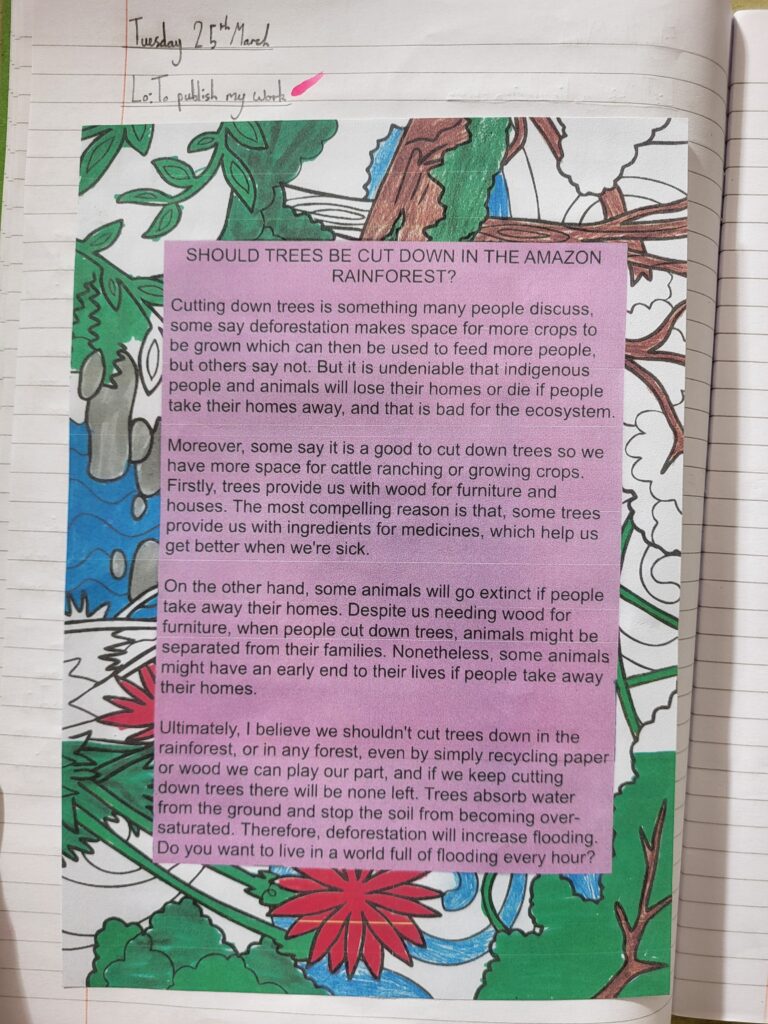 Tuesday 25th March
Lo: To publish my work
SHOULD TREES BE CUT DOWN IN THE AMAZON
RAINFOREST?
Cutting down trees is something many people discuss,
some say deforestation makes space for more crops to
be grown which can then be used to feed more people,
but others say not. But it is undeniable that indigenous
people and animals will lose their homes or die if people
take their homes away, and that is bad for the ecosystem.
Moreover, some say it is a good to cut down trees so we
have more space for cattle ranching or growing crops.
Firstly, trees provide us with wood for furniture and
houses. The most compelling reason is that, some trees
provide us with ingredients for medicines, which help us
get better when we're sick.
On the other hand, some animals will go extinct if people
take away their homes. Despite us needing wood for
furniture, when people cut down trees, animals might be
separated from their families. Nonetheless, some animals
might have an early end to their lives if people take away
their homes.
Ultimately, I believe we shouldn't cut trees down in the
rainforest, or in any forest, even by simply recycling paper
or wood we can play our part, and if we keep cutting
down trees there will be none left. Trees absorb water
from the ground and stop the soil from becoming over-
saturated. Therefore, deforestation will increase flooding.
Do you want to live in a world full of flooding every hour?